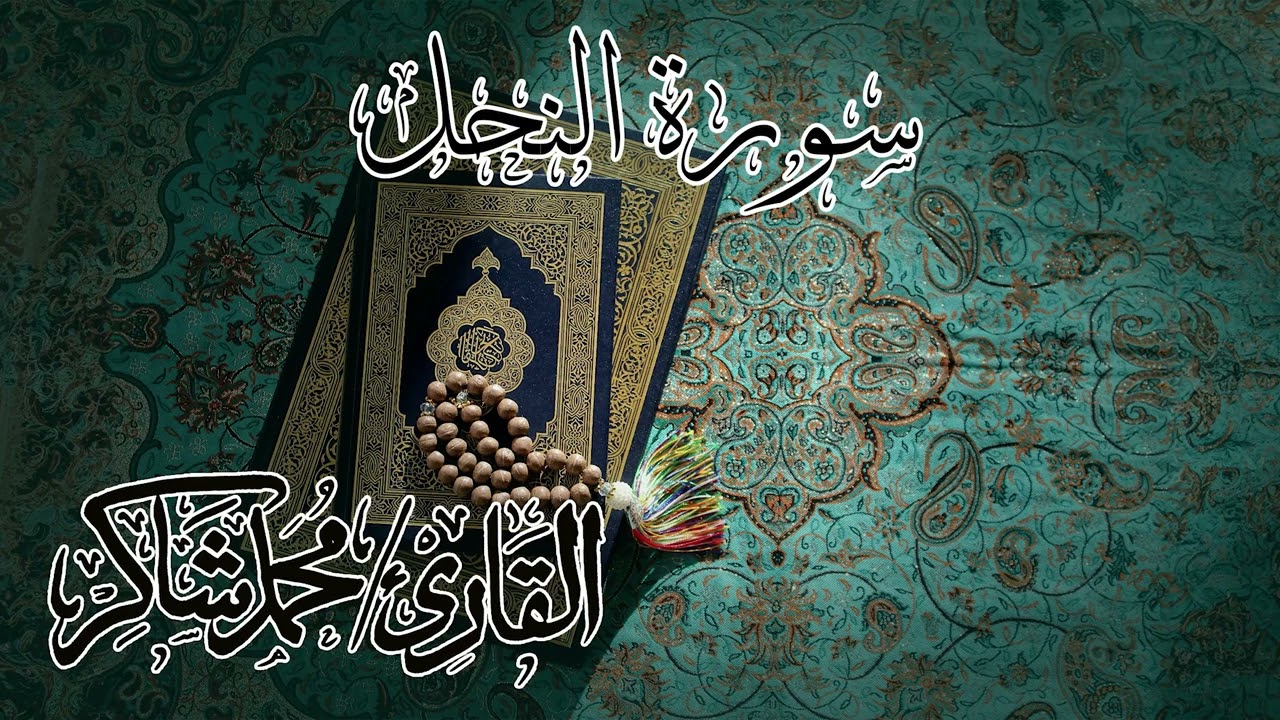 سورة النحل
القَارِئ/مُحمد شَاكِر